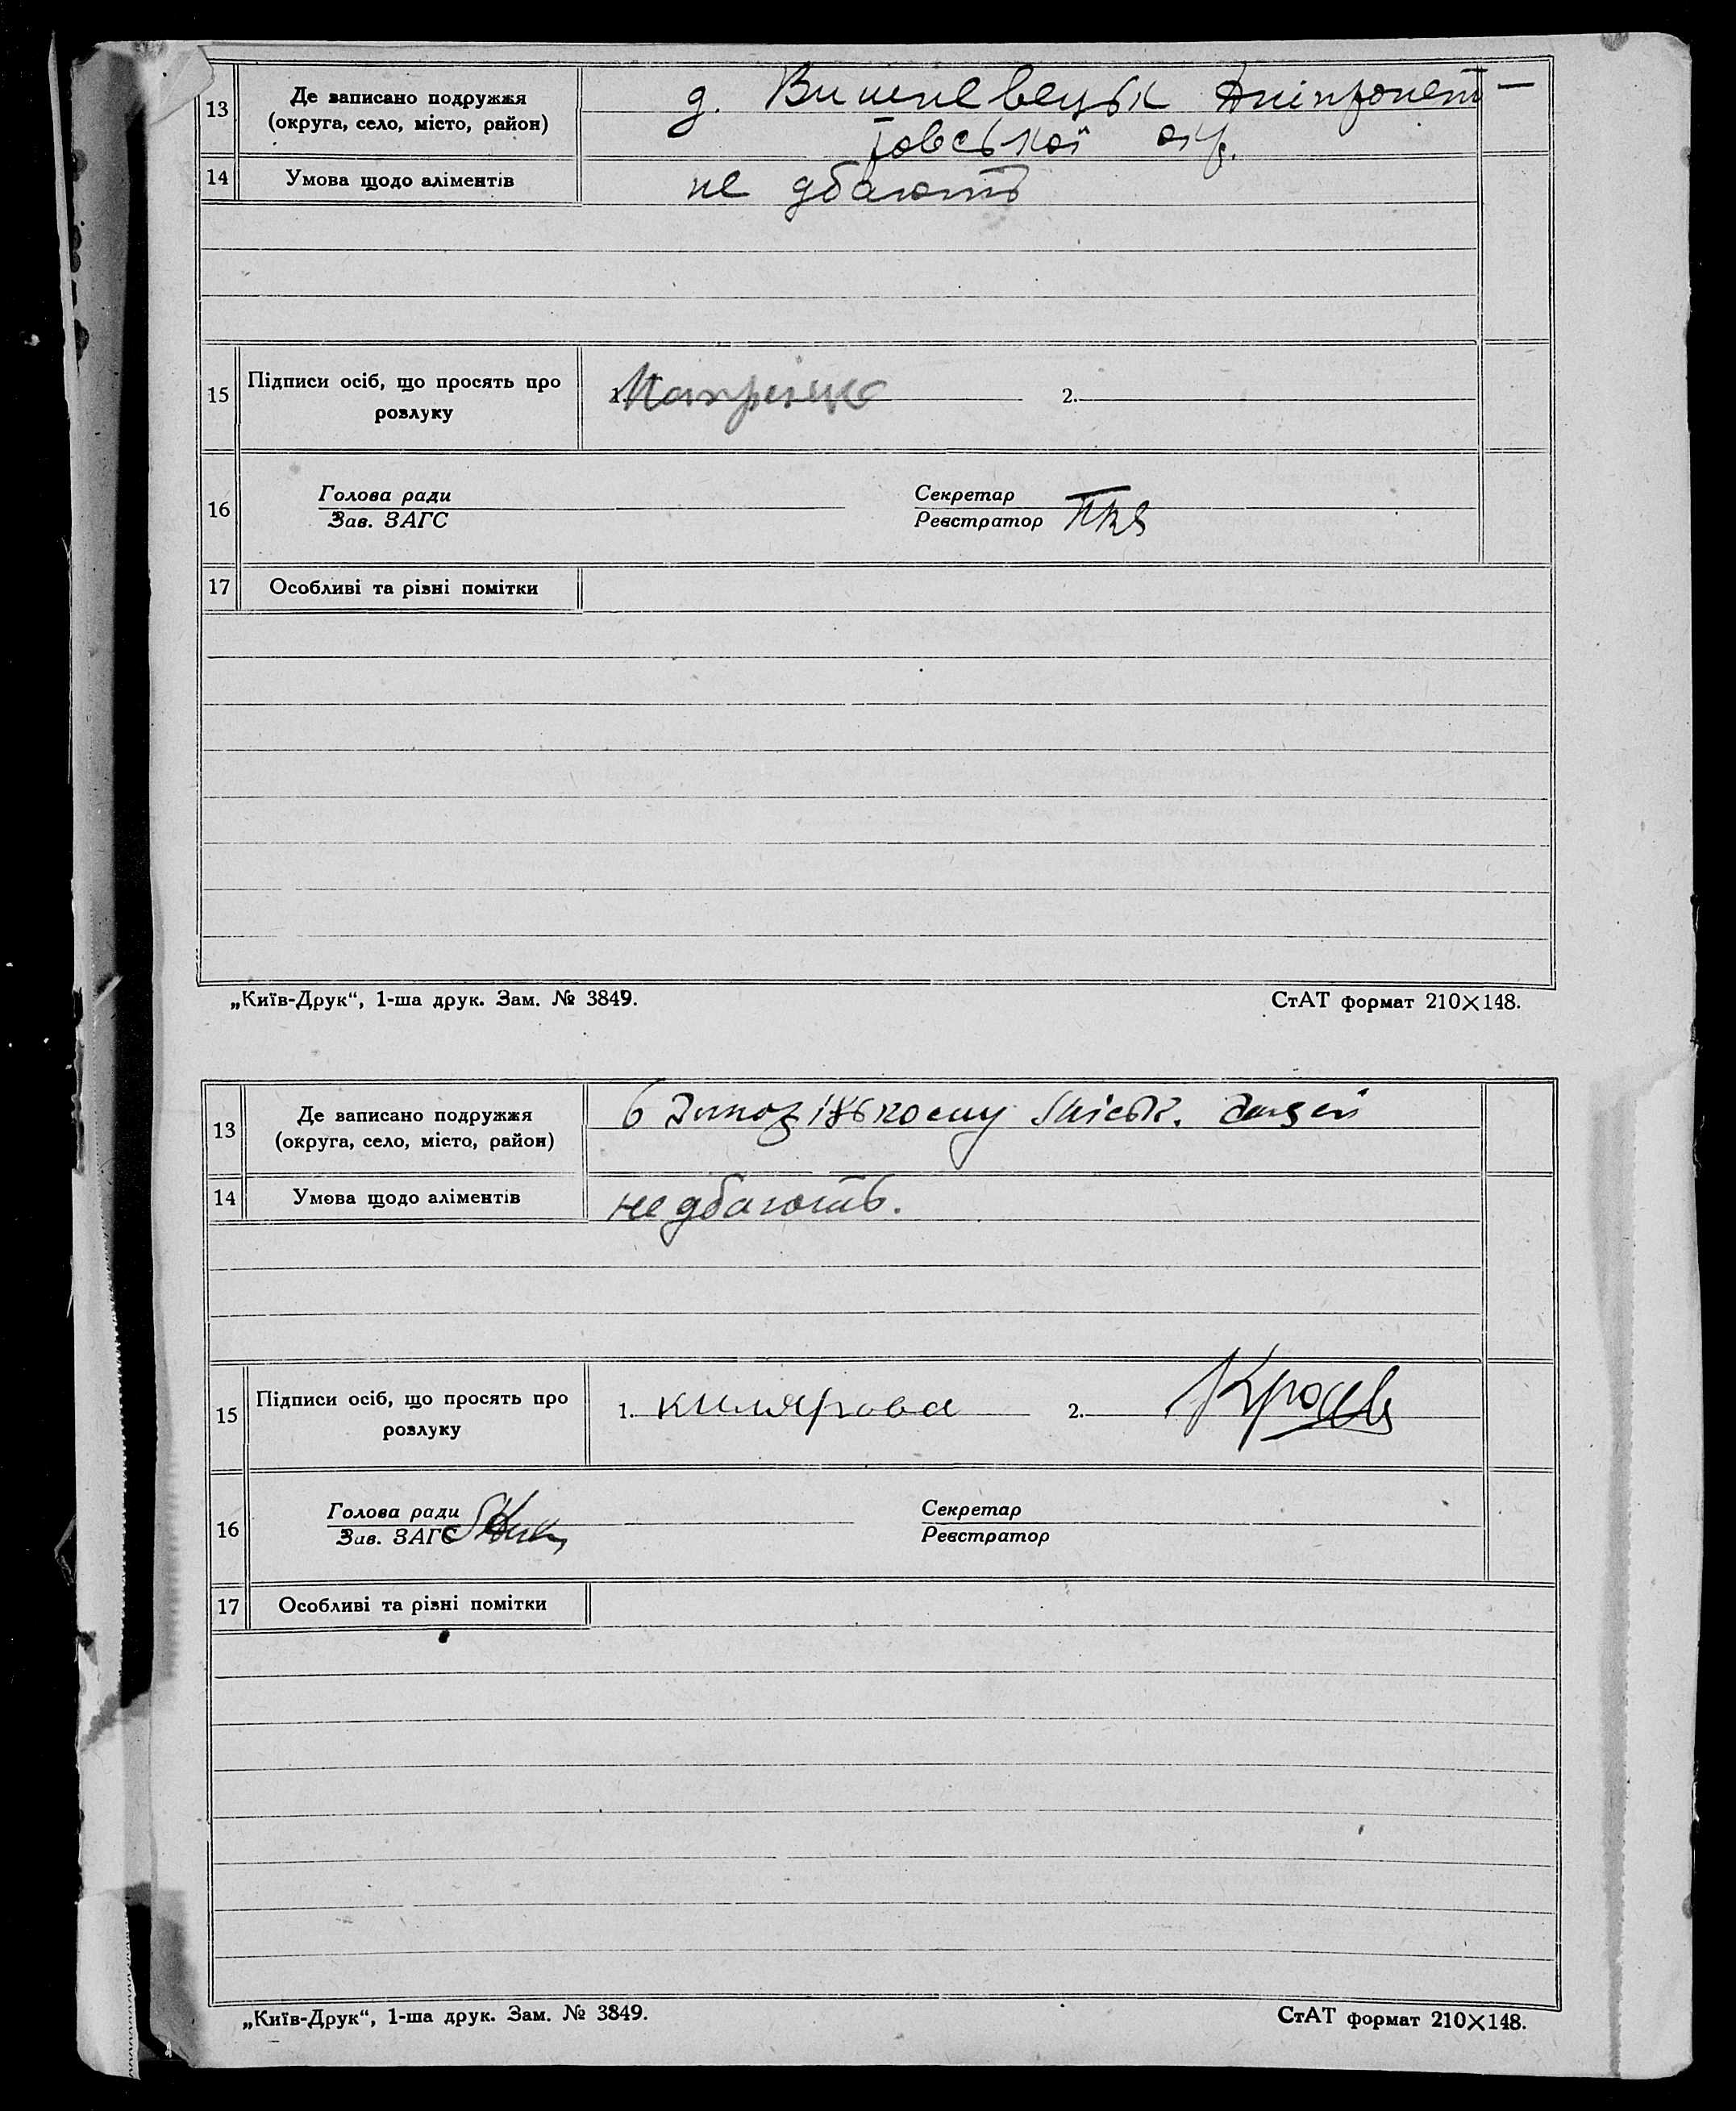 13 Де записано подружжя
(округа, село, місто, район)
д. Вишневецьк Дніпропет-
ровської окр.
14 Умова щодо аліментів не дбають
15 Підписи осіб, що просять про
розлуку
1. 2.
16 Голова ради
Зав. ЗАГС
Секретар
Реєстратор
17 Особливі та різні помітки
„Київ-Друк“, 1-ша друк. Зам. № 3849. СтАТ формат 210×148.
13 Де записано подружжя
(округа, село, місто, район)
в міськ.
14 Умова щодо аліментів не дбають.
15 Підписи осіб, що просять про
розлуку
1. 2.
16 Голова ради
Зав. ЗАГС
Секретар
Реєстратор
17 Особливі та різні помітки
„Київ-Друк“, 1-ша друк. Зам. № 3849. СтАТ формат 210×148.